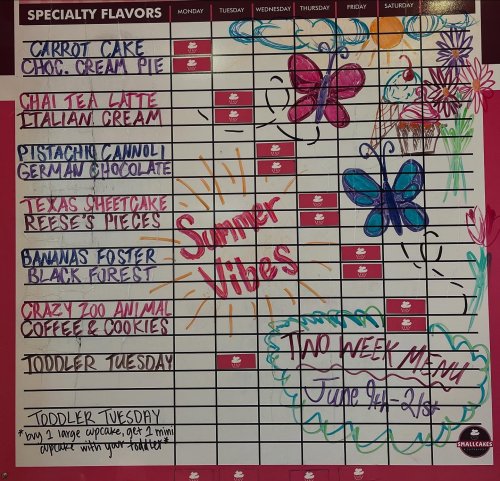 SPECIALTY FLAVORS MONDAY TUESDAY WEDNESDAY THURSDAY FRIDAY SATURDAY
CARROT CAKE
CHOC. CREAM PIE
CHAI TEA LATTE
ITALIAN CREAM
PISTACHIO CANNOLI
GERMAN CHOCOLATE
TEXAS SHEETCAKE
REESE'S PIECES
Summer
Vibes
BANANAS FOSTER
BLACK FOREST
CRAZY ZOO ANIMAL
COFFEE & COOKIES
TWO WEEK MENU
June 9th-21st
TODDLER TUESDAY
TODDLER TUESDAY
*buy 1 large cupcake, get 1 mini
cupcake with your toddler*
SMALLCAKES